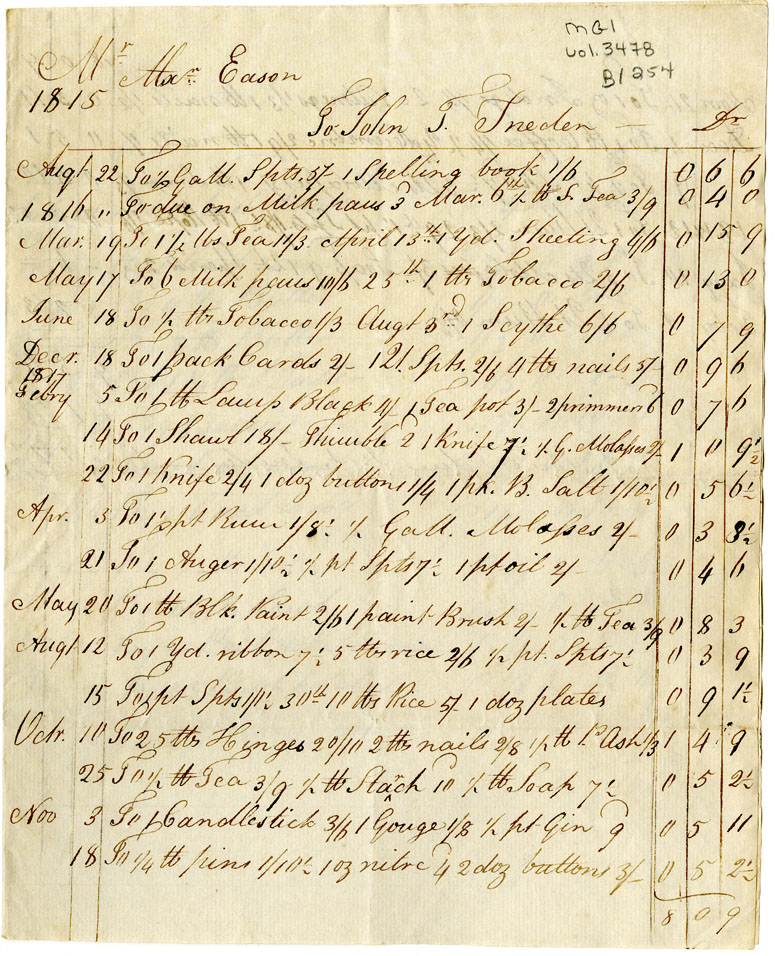 MG1
vol. 3478
B1254
Mr Alxr. Eason
1815
To John T. Sneden — Dr
Augt 22 To ½ Gall. Spts. 5/ 1 Spelling book 1/6 0 6 6
1816 " To due on Milk pans 3d Mar. 6th ½ lb S. Tea 3/9 0 4 0
Mar. 19 To 1½ lbs Tea 11/3. April 13th 1 Yd. Sheeting 4/6 0 15 9
May 17 To 6 Milk pans 10/6 25th 1 lb Tobacco 2/6 0 13 0
June 18 To ½ lb Tobacco 1/3 Augt 3rd 1 Scythe 6/6 0 7 9
Decr. 18 To 1 pack Cards 2/- 1 Qt. Spts. 2/6 4 lbs nails 5/- 0 9 6
1817
Febry 5 To 1 lb Lamp Black 4/- 1 Tea pot 3/- 2 primmers 6d 0 7 6
14 To 1 Shawl 18/- Thimble 2d 1 Knife 7½ ½ G. Molasses 2/- 1 0 9½
22 To 1 Knife 2/4 1 doz buttons 1/4 1 pk. B. Salt 1/10½ 0 5 6½
Apr. 3 To 1 pt Rum 1/8½ ½ Gall. Molasses 2/- 0 3 8½
21 To 1 Auger 1/10½ ½ pt Spts 7½ 1 pt oil 2/- 0 4 6
May 20 To 1 lb Blk. Paint 2/6 1 paint Brush 2/- ½ lb Tea 3/9 0 8 3
Augt 12 To 1 Yd. ribbon 7½ 5 lbs rice 2/6 ½ pt. Spts 7½ 0 3 9
15 To 1 pt Spts 1/1½ 30th 10 lbs Rice 5/- 1 doz plates 0 9 1½
Octr. 10 To 25 lbs Hinges 20/10 2 lbs nails 2/8 1½ lb P. Ash 1/3 1 4 9
25 To ½ lb Tea 3/9 ½ lb Stach 10d ½ lb Soap 7½ 0 5 2½
Nov 3 To 1 Candlestick 3/6 1 Gouge 1/8 ½ pt Gin 9d 0 5 11
18 To ¼ lb pins 1/10½ 1 oz nitre 4d 2 doz buttons 3/- 0 5 2½
8 0 9